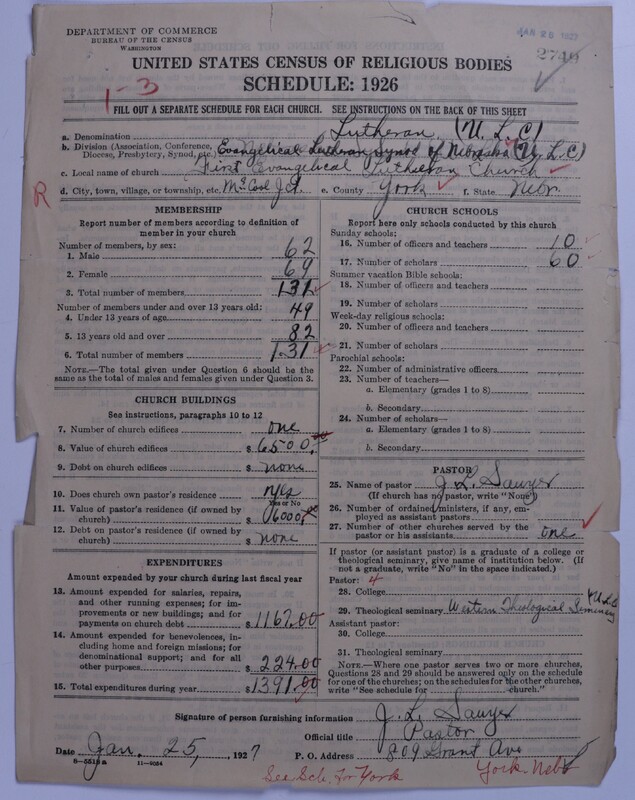 DEPARTMENT OF COMMERCE
BUREAU OF THE CENSUS
WASHINGTON
JAN 26 1927
2749
UNITED STATES CENSUS OF RELIGIOUS BODIES
SCHEDULE: 1926
1-3
FILL OUT A SEPARATE SCHEDULE FOR EACH CHURCH. SEE INSTRUCTIONS ON THE BACK OF THIS SHEET
a. Denomination Lutheran (U. L. C)
b. Division (Association, Conference, Diocese, Presbytery, Synod, etc.) Evangelical Lutheran Synod of Nebraska (U. L. C)
c. Local name of church First Evangelical Lutheran Church
R
d. City, town, village, or township, etc. McCool Jct. e. County York f. State Nebr.
MEMBERSHIP
Report number of members according to definition of
member in your church
Number of members, by sex:
1. Male 62
2. Female 69
3. Total number of members 131
Number of members under and over 13 years old:
4. Under 13 years of age 49
5. 13 years old and over 82
6. Total number of members 131
NOTE.—The total given under Question 6 should be
same as the total of males and females given under Question 3.
CHURCH BUILDINGS
See instructions, paragraphs 10 to 12
7. Number of church edifices one
8. Value of church edifices $ 6500.00
9. Debt on church edifices $ none
10. Does church own pastor's residence yes
Yes or No
11. Value of pastor's residence (if owned by
church) $ 6000.00
12. Debt on pastor's residence (if owned by
church) $ none
EXPENDITURES
Amount expended by your church during last fiscal year
13. Amount expended for salaries, repairs,
and other running expenses; for im-
provements or new buildings; and for
payments on church debt $ 1167.00
14. Amount expended for benevolences,
including home and foreign missions; for
denominational support; and for all
other purposes $ 224.00
15. Total expenditures during year $ 1391.00
CHURCH SCHOOLS
Report here only schools conducted by this church
Sunday schools:
16. Number of officers and teachers 10
17. Number of scholars 60
Summer vacation Bible schools:
18. Number of officers and teachers
19. Number of scholars
Week-day religious schools:
20. Number of officers and teachers
21. Number of scholars
Parochial schools:
22. Number of administrative officers
23. Number of teachers—
a. Elementary (grades 1 to 8)
b. Secondary
24. Number of scholars—
a. Elementary (grades 1 to 8)
b. Secondary
PASTOR
25. Name of pastor J. L. Sawyer
(If church has no pastor, write "None")
26. Number of ordained ministers, if any, em-
ployed as assistant pastors
27. Number of other churches served by the
pastor or his assistants one
If pastor (or assistant pastor) is a graduate of a college or
theological seminary, give name of institution below. (If
not a graduate, write "No" in the space indicated.)
Pastor: 4
28. College
29. Theological seminary Western Theological Seminary (U. L. C
Assistant pastor:
30. College
31. Theological seminary
NOTE.—Where one pastor serves two or more churches,
Questions 28 and 29 should be answered only on the schedule
for one of the churches; on the schedules for the other churches,
write "See schedule for church."
Signature of person furnishing information J. L. Sawyer
Official title Pastor
Date Jan. 25, 1927 P. O. Address 809 Grant Ave
8-5519 a 11-9054
See Sch. for York York Nebr